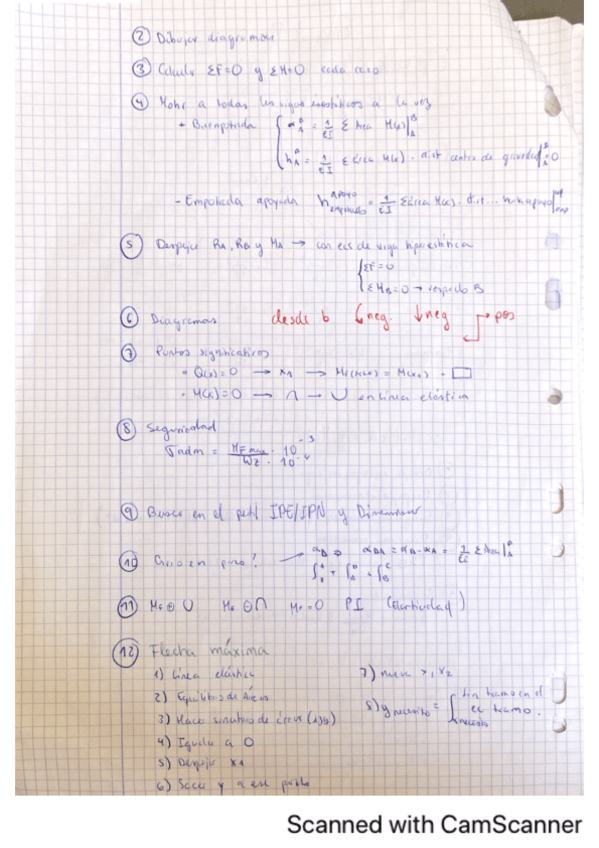 ② Dibujar diagramas
③ Calculo ΣF=0 y ΣM=0 cada caso
④ Mohr a todas las vigas isostáticas a la vez
+ Biempotrada { α_A^B = 1/EI Σ Área M(x)|_A^B
h_A^B = 1/EI Σ Área M(x) · dist centro de gravedad|_A^B = 0
- Empotrada apoyada h_empotrado^apoyo = 1/EI Σ Área M(x) · dist...
⑤ Despejo RA, RB y MA → con ecs de viga hiperestática
{ ΣF=0
ΣM_B=0 → respecto B
⑥ Diagramas desde b neg. ↓neg → pos
⑦ Puntos significativos
• Q(x)=0 → x1 → Mf(max) = M(x1) = □
• M(x)=0 → ∩ → ∪ en línea elástica
⑧ Seguridad
σadm = Mf max / Wz · 10^-3 / 10^-6
⑨ Busco en el perfil IPE/IPN y Dimensionar
⑩ Giro en punto? → α_D ⇒ α_DA = α_D - α_A = 1/EI Σ Área|_A^D
⑪ Mf ⊕ ∪ Mf ⊖ ∩ Mf = 0 PI (elasticidad)
⑫ Flecha máxima
1) Línea elástica
2) Equilibrio de Áreas
3) Hago sumatorio de áreas
4) Igualo a 0
5) Despejo x1
6) Saco y a ese punto
7) nueva x1 x2
8) y necesito = ∫ fin tramo en el ec tramo.
necesito
Scanned with CamScanner